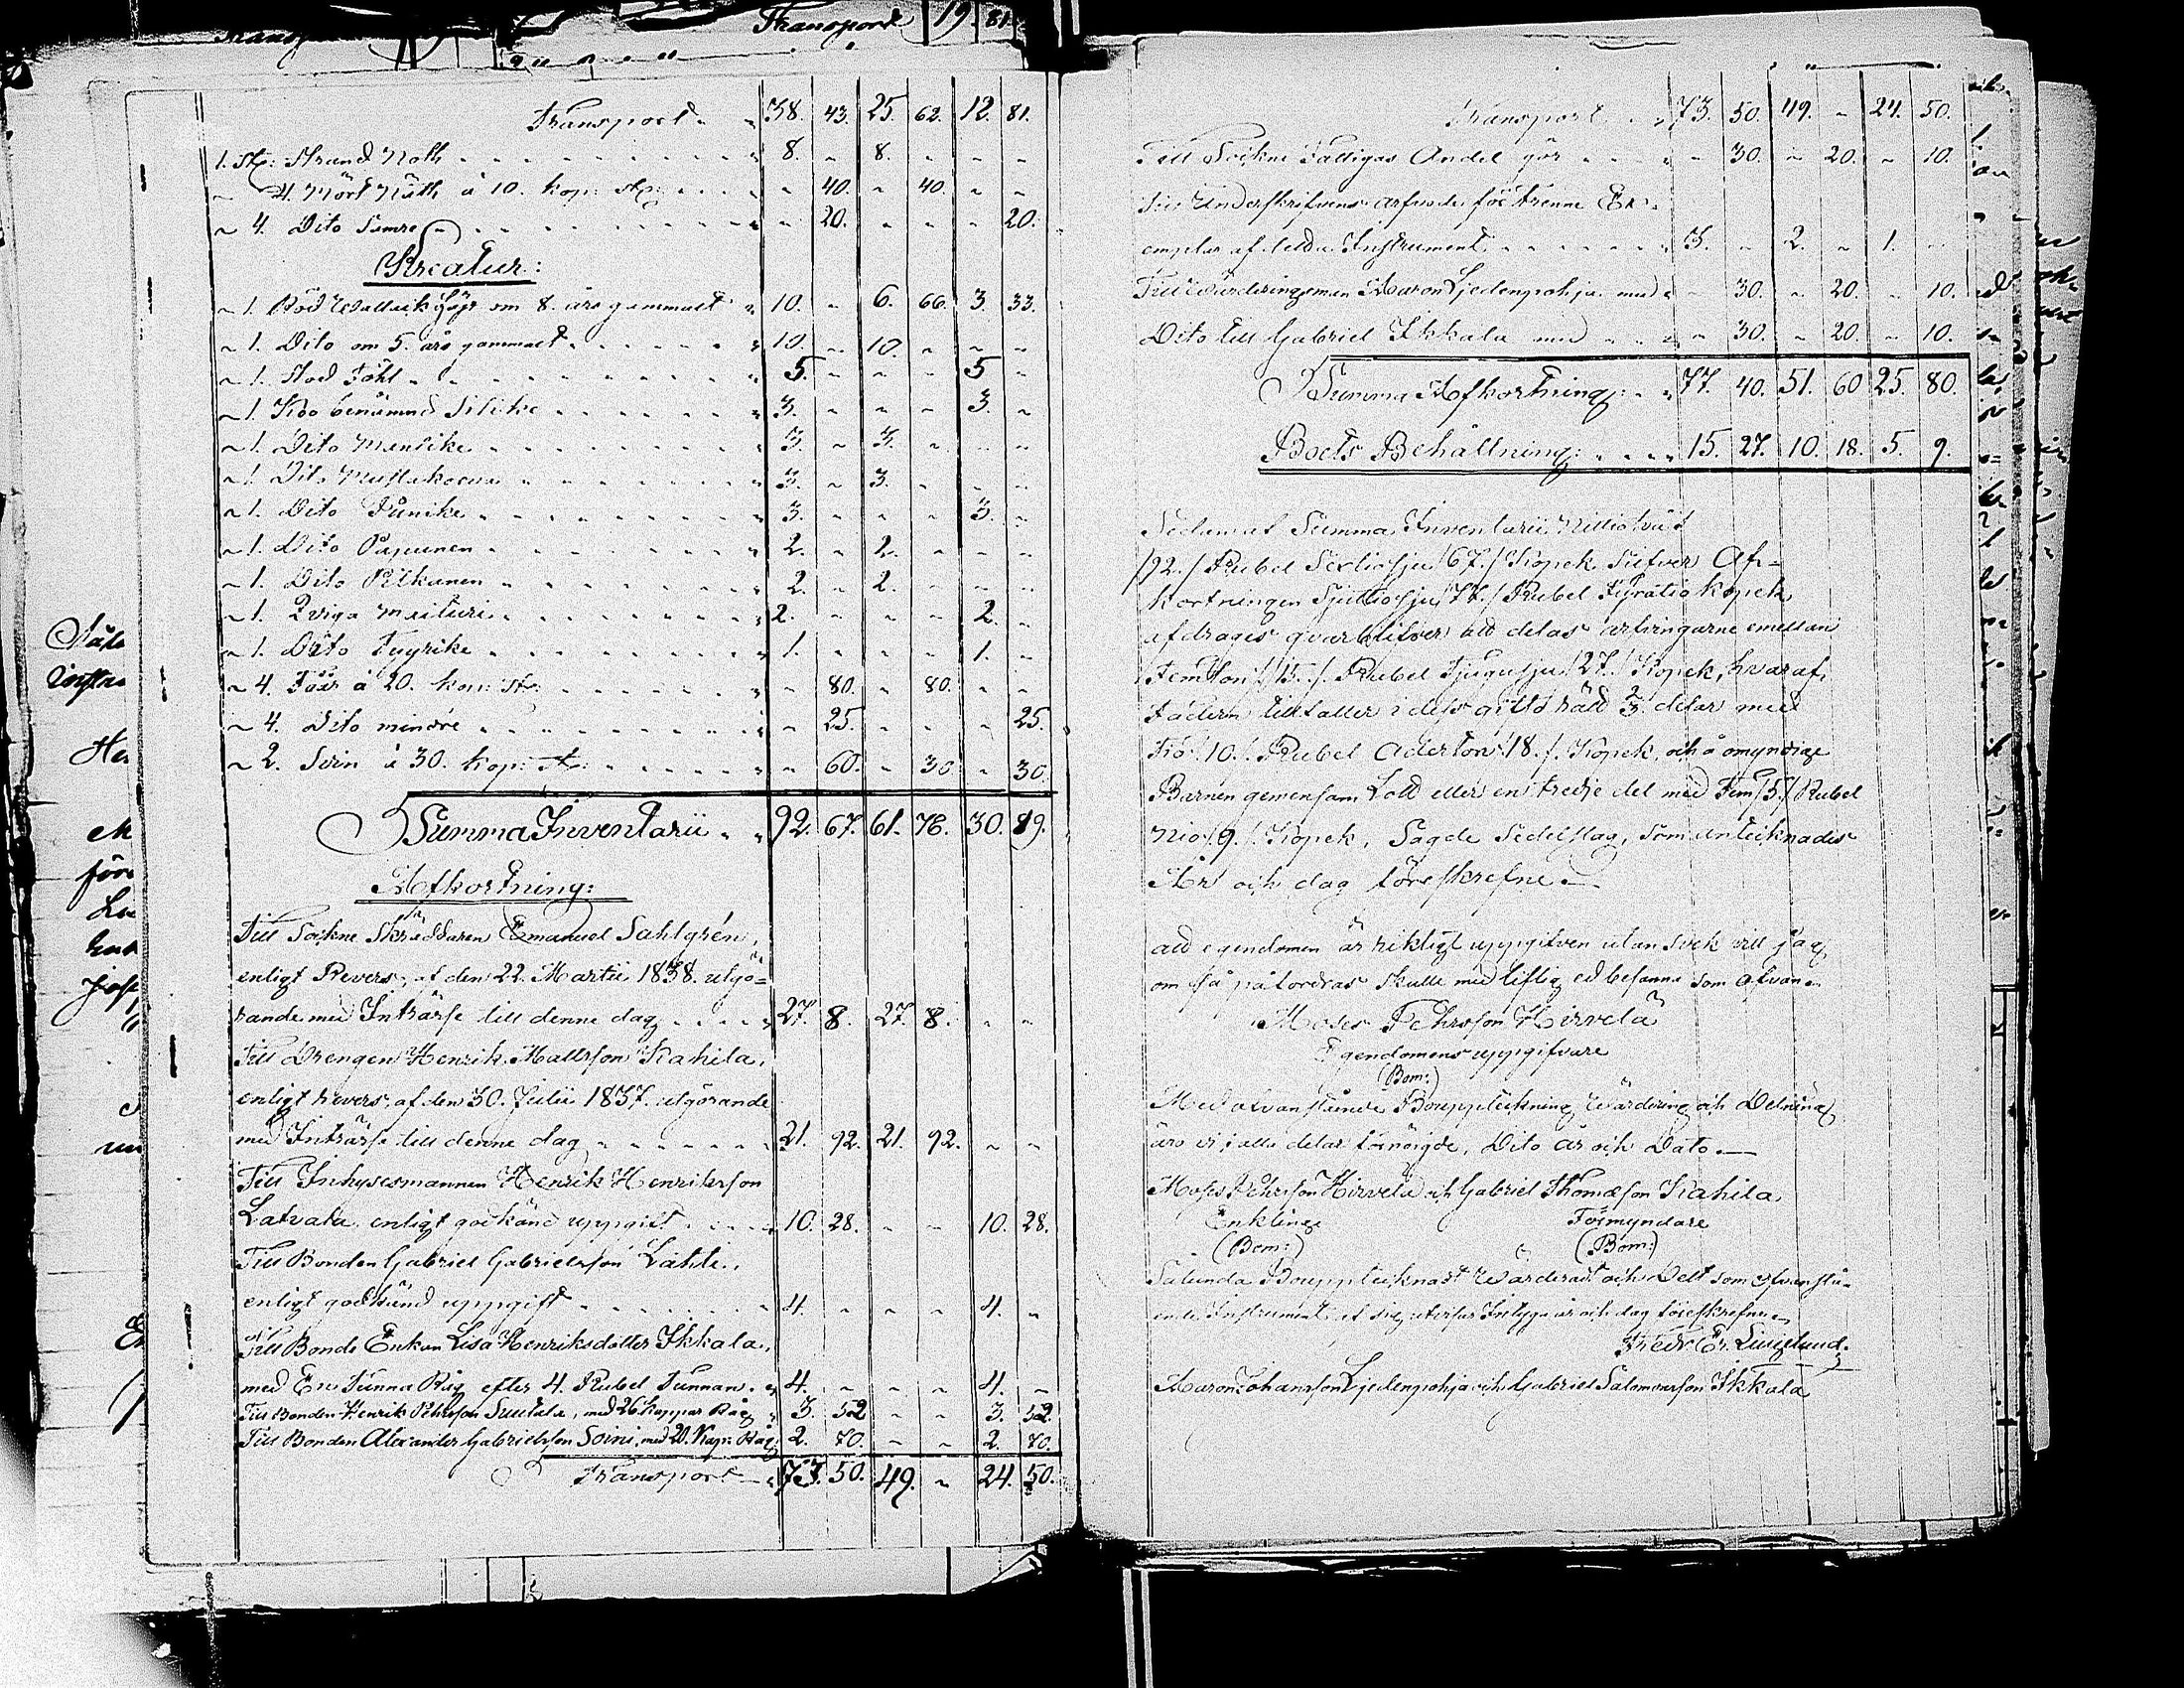 Transport 19. 81.
Transport 38. 43. 25. 62. 12. 81.
1. St: Strand Noth 8. " 8. " " "
" 4. Mört Nät à 10. kop: st: " 40. " 40. " "
" 4. Dito Sämre " 20. " " " 20.
Kreatur:
" 1. Röd Wallack Häst om 8. års gammalt 10. " 6. 66. 3. 33.
" 1. Dito om 5. års gammalt 10. " 10. " " "
" 1. Stod Föhl 5. " " " 5. "
" 1. Koo benämnd Silike 3. " " " 3. "
" 1. Dito Mansike 3. " 3. " " "
" 1. Dito Mustakorva 3. " 3. " " "
" 1. Dito Punike 3. " " " 3. "
" 1. Dito Papunen 2. " 2. " " "
" 1. Dito Pilkanen 2. " 2. " " "
" 1. Qviga Maituri 2. " " " 2. "
" 1. Dito Tuyrike 1. " " " 1. "
" 4. Fåår à 20. kop: st: " 80. " 80. " "
" 4. Dito mindre " 25. " " " 25.
" 2. Svin à 30. kop: st: " 60. " 30. " 30.
Summa Inventarii 92. 67. 61. 78. 30. 89.
Afkortning:
Till Sockne Skräddaren Emanuel Sahlgrén,
enligt Revers, af den 22. Martii 1838. utgö=
rande med Inträsse till denne dag 27. 8. 27. 8. " "
Till Drengen Henrik Mattsson Kahila,
enligt revers, af den 30. Julii 1837. utgörande
med Inträsse till denne dag 21. 92. 21. 92. " "
Till Inhysesmannen Henrik Henriksson
Latvala enligt godkänd uppgift 10. 28. " " 10. 28.
Till Bonden Gabriel Gabrielsson Lahti,
enligt godkänd uppgift 4. " " " 4. "
Till Bonde Enkan Lisa Henriksdotter Ikkala,
med En Tunna Råg efter 4. Rubel Tunnan 4. " " " 4. "
Till Bonden Henrik Pehrsson Suutala, med 26 kappar Råg 3. 52. " " 3. 52.
Till Bonden Alexander Gabrielsson Soini, med 20. Kapp: Råg 2. 70. " " 2. 70.
Transport 73. 50. 49. " 24. 50.
Transport 73. 50. 49. " 24. 50.
Till Sockne Fattigas Andel gör " 30. " 20. " 10.
Till Underskrifvens arfvode för trenne Ex=
emplar af detta Instrument 3. " 2. " 1. "
Till Värderingsman Aaron Ljedenpohja med " 30. " 20. " 10.
Dito till Gabriel Ikkala med " 30. " 20. " 10.
Summa Afkortning: 77. 40. 51. 60. 25. 80.
Boets Behållning: 15. 27. 10. 18. 5. 9.
Sedan af Summa Inventarii Nittiotvå
/92./ Rubel Sextiosju /67./ Kopek Silfver Af=
kortningen Sjuttiosju /77./ Rubel Fyratio kopek
afdrages qvarblifver att delas arfvingarne emellan
Femton /15./ Rubel Tjugusju /27./ Kopek, hvaraf
Fadern tillfaller i dess giftorätt 2/3 delar med
Tio /10./ Rubel Aderton /18./ Kopek, och omyndige
Barnen gemensam Lott eller en tredje del med Fem /5./ Rubel
Nio /9./ Kopek, Sagde Sedelslag, som antecknades
År och dag föreskrefne.
att egendomen är riktigt uppgifven utan svek vill jag
om så påfordras skulle med liflig ed besanna som ofvan
Moses Pehrsson Hirvelä
Egendomens uppgifvare
(Bom:)
Med ofvanstående Bouppteckning Wärdering och Delning
äro vi i alla delar förnöigde, Dito år och Dato.
Moses Pehrsson Hirvelä och Gabriel Thomasson Kahila
Enkling Förmyndare
(Bom:) (Bom:)
Sålunda Boupptecknadt Wärderadt och Delt som ofvanstå=
ende Instrument af sig utvisar Intyga år och dag föreskrefne
Fredr Er. Ljunglund.
Aaron Johansson Ljedenpohja och Gabriel Salomonsson Ikkala